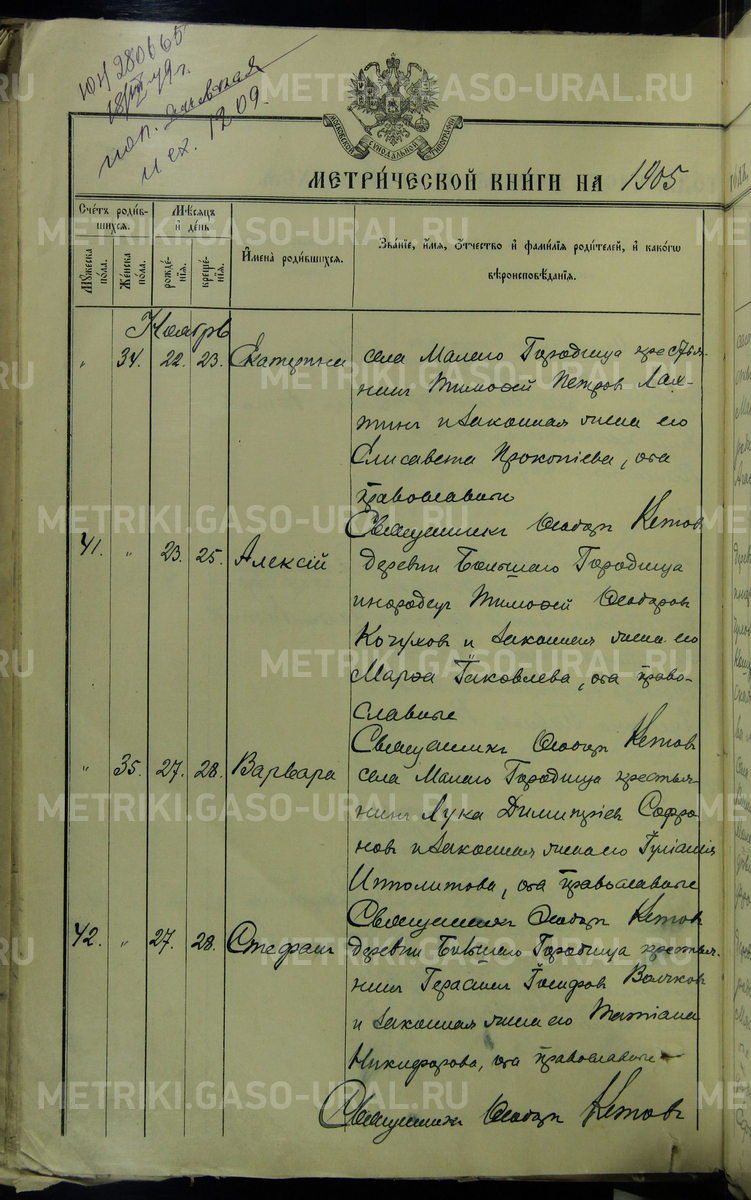 ЮЧ 280665
18/VII-49 г.
исх. 1209.
МОСКОВСКОЙ СѴНОДАЛЬНОЙ ТИПОГРАФІИ
МЕТРИ́ЧЕСКОЙ КНИ́ГИ НА 1905
Сче́тъ роди́вшихся.
Мѣ́сяцъ и де́нь
Му́жеска по́ла.
Же́нска по́ла.
рожде́нія.
креще́нія.
Имена̀ роди́вшихся.
Зва́ніе, и́мя, о́тчество и фами́лія роди́телей, и како́гѡ вѣроисповѣ́данія.
Ноябрь
" 34. 22. 23. Екатерина
села Малаго Городища крестья-
нинъ Тимоѳей Петровъ Лах-
тинъ и законная жена его
Елисавета Прокопіева, оба
православные
Священникъ Ѳеодоръ Кетовъ
41. " 23. 25. Алексій
деревни Большаго Городища
инородецъ Тимоѳей Ѳеодоровъ
и законная жена его
Марѳа Іаковлева, оба право-
славные
Священникъ Ѳеодоръ Кетовъ
" 35. 27. 28. Варвара
села Малаго Городища крестья-
нинъ Лука Димитріев Софро
новъ и законная жена его Іуліанія
Ипполитова, оба православные
Священникъ Ѳеодоръ Кетовъ
42. " 27. 28. Стефанъ
деревни Большаго Городища крестья-
нинъ Герасимъ Іосифовъ Волковъ
и законная жена его Татіана
Никифорова, оба православные
Священникъ Ѳеодоръ Кетовъ
METRIKI.GASO-URAL.RU